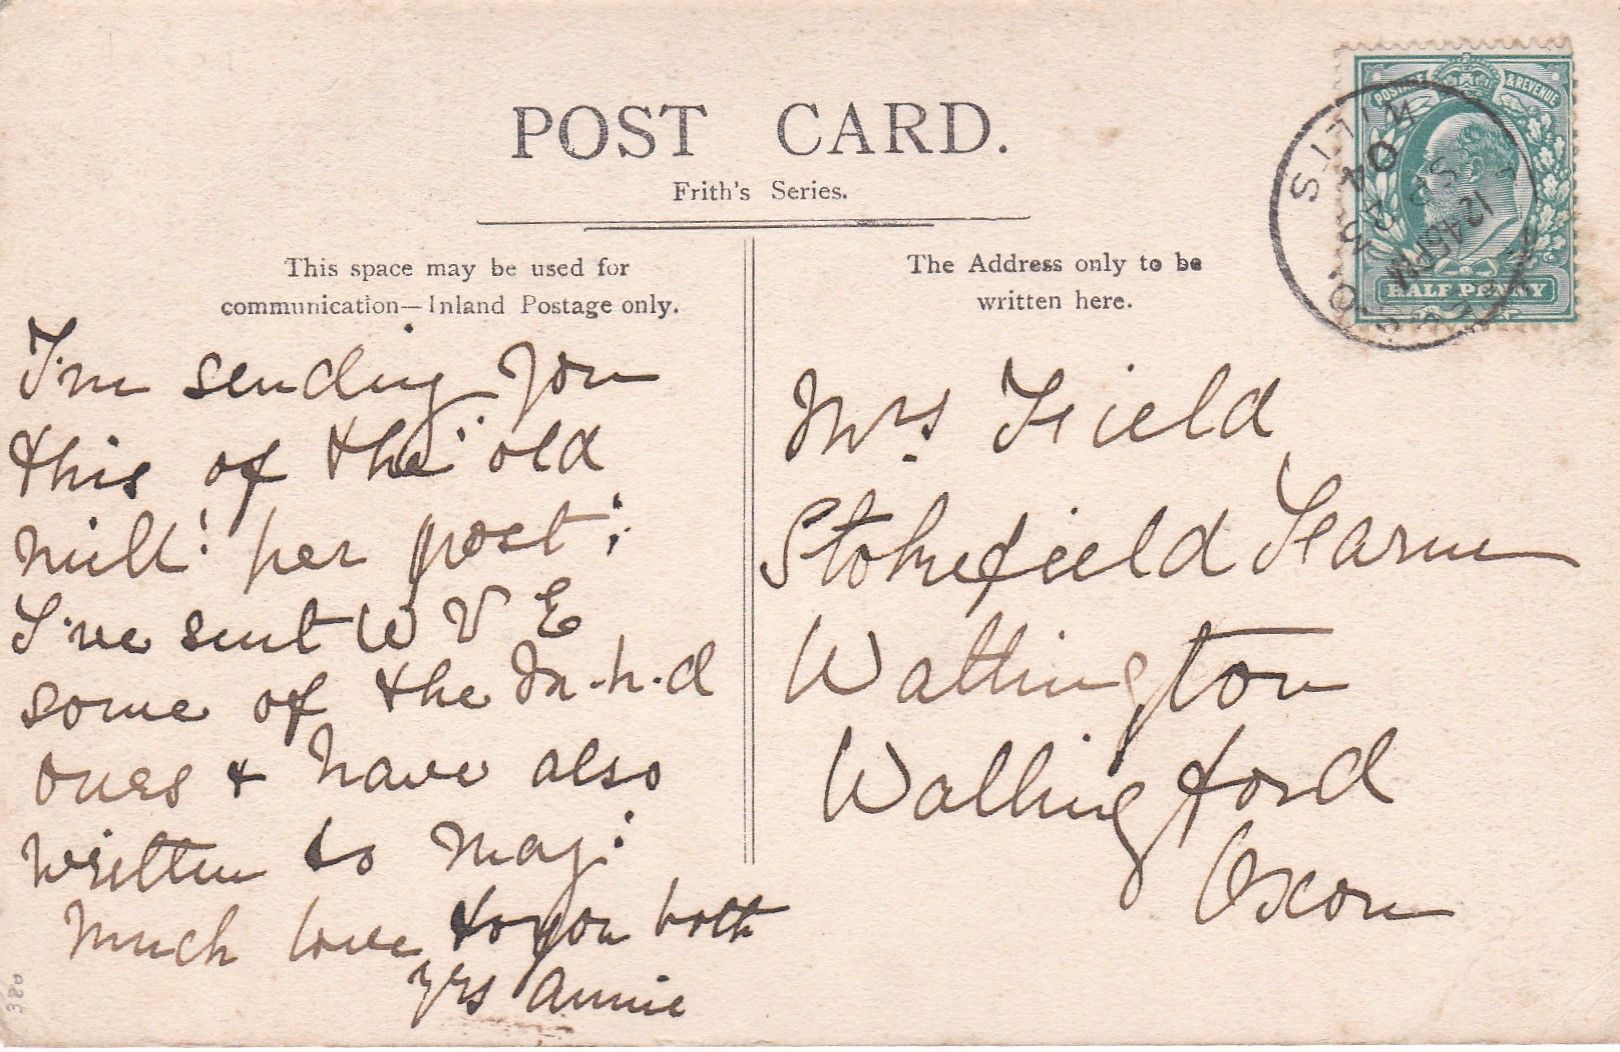 POST CARD.
Frith's Series.
This space may be used for
communication—Inland Postage only.
The Address only to be
written here.
POSTAGE & REVENUE
HALF PENNY
WILTS
12.45 PM
SP 23
04
I'm sending you
this of the "old
mill" per post;
I've sent W V E
some of the
ones & have also
written to May:
Much love to you both
yrs Annie
Mrs Field
Stokefield Farm
Wallingford
Oxon
380